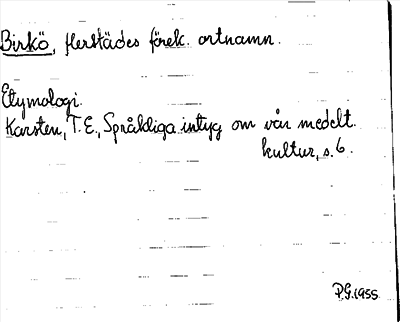 Birkö, flerstädes förek. ortnamn.
Etymologi.
Karsten, T.E., Språkliga intyg om vår medelt.
kultur, s. 6.
P.G. 1955